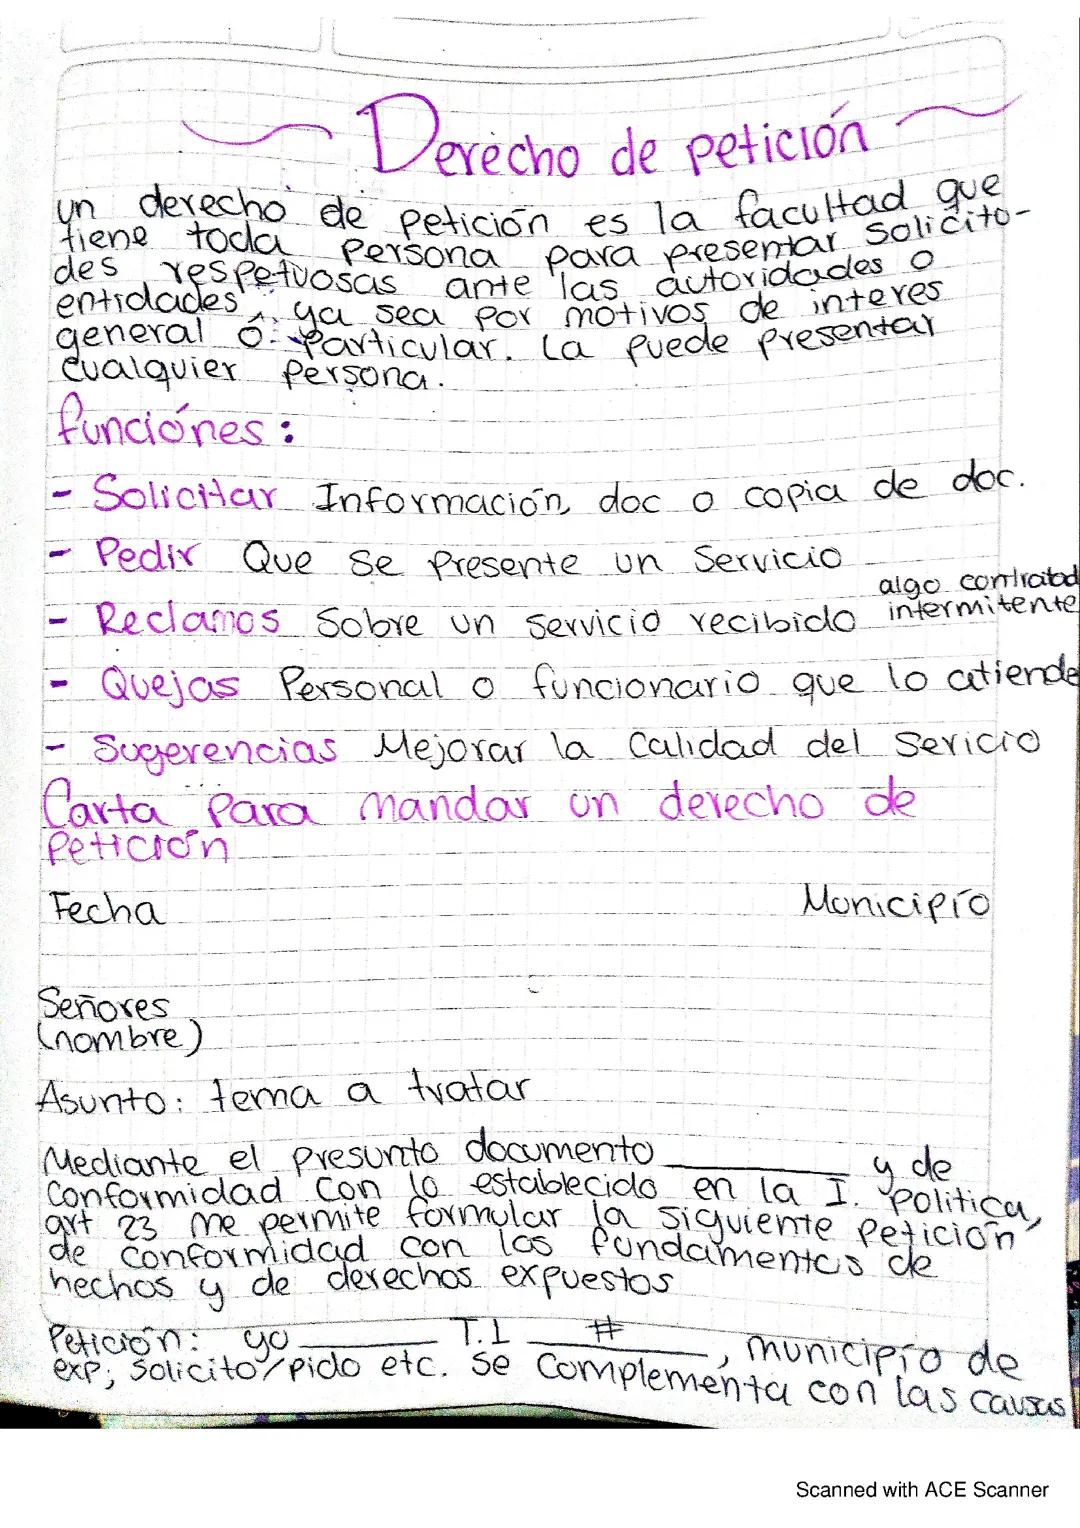 Derecho de petición
un derecho de petición es la facultad que
tiene toda persona para presentar solicito-
des respetuosas ante las autoridades o
entidades, ya sea por motivos de interes
general o particular. la puede presentar
cualquier persona.
funciónes:
- Solicitar Información, doc o copia de doc.
- Pedir Que se presente un servicio
algo contratad
- Reclamos Sobre un servicio recibido intermitente
- Quejas Personal o funcionario que lo atiende
- Sugerencias Mejorar la calidad del sericio
Carta para mandar un derecho de
Petición
Fecha Municipío
Señores
(nombre)
Asunto: tema a tratar
Mediante el presunto documento ________ y de
conformidad con lo establecido en la I. Politica,
art 23 me permite formular la siguiente petición
de conformidad con los fundamentos de
hechos y de derechos expuestos
Petición: yo ________ T.I ___#___, municipío de
exp; solicito/pido etc. se complementa con las causas
Scanned with ACE Scanner